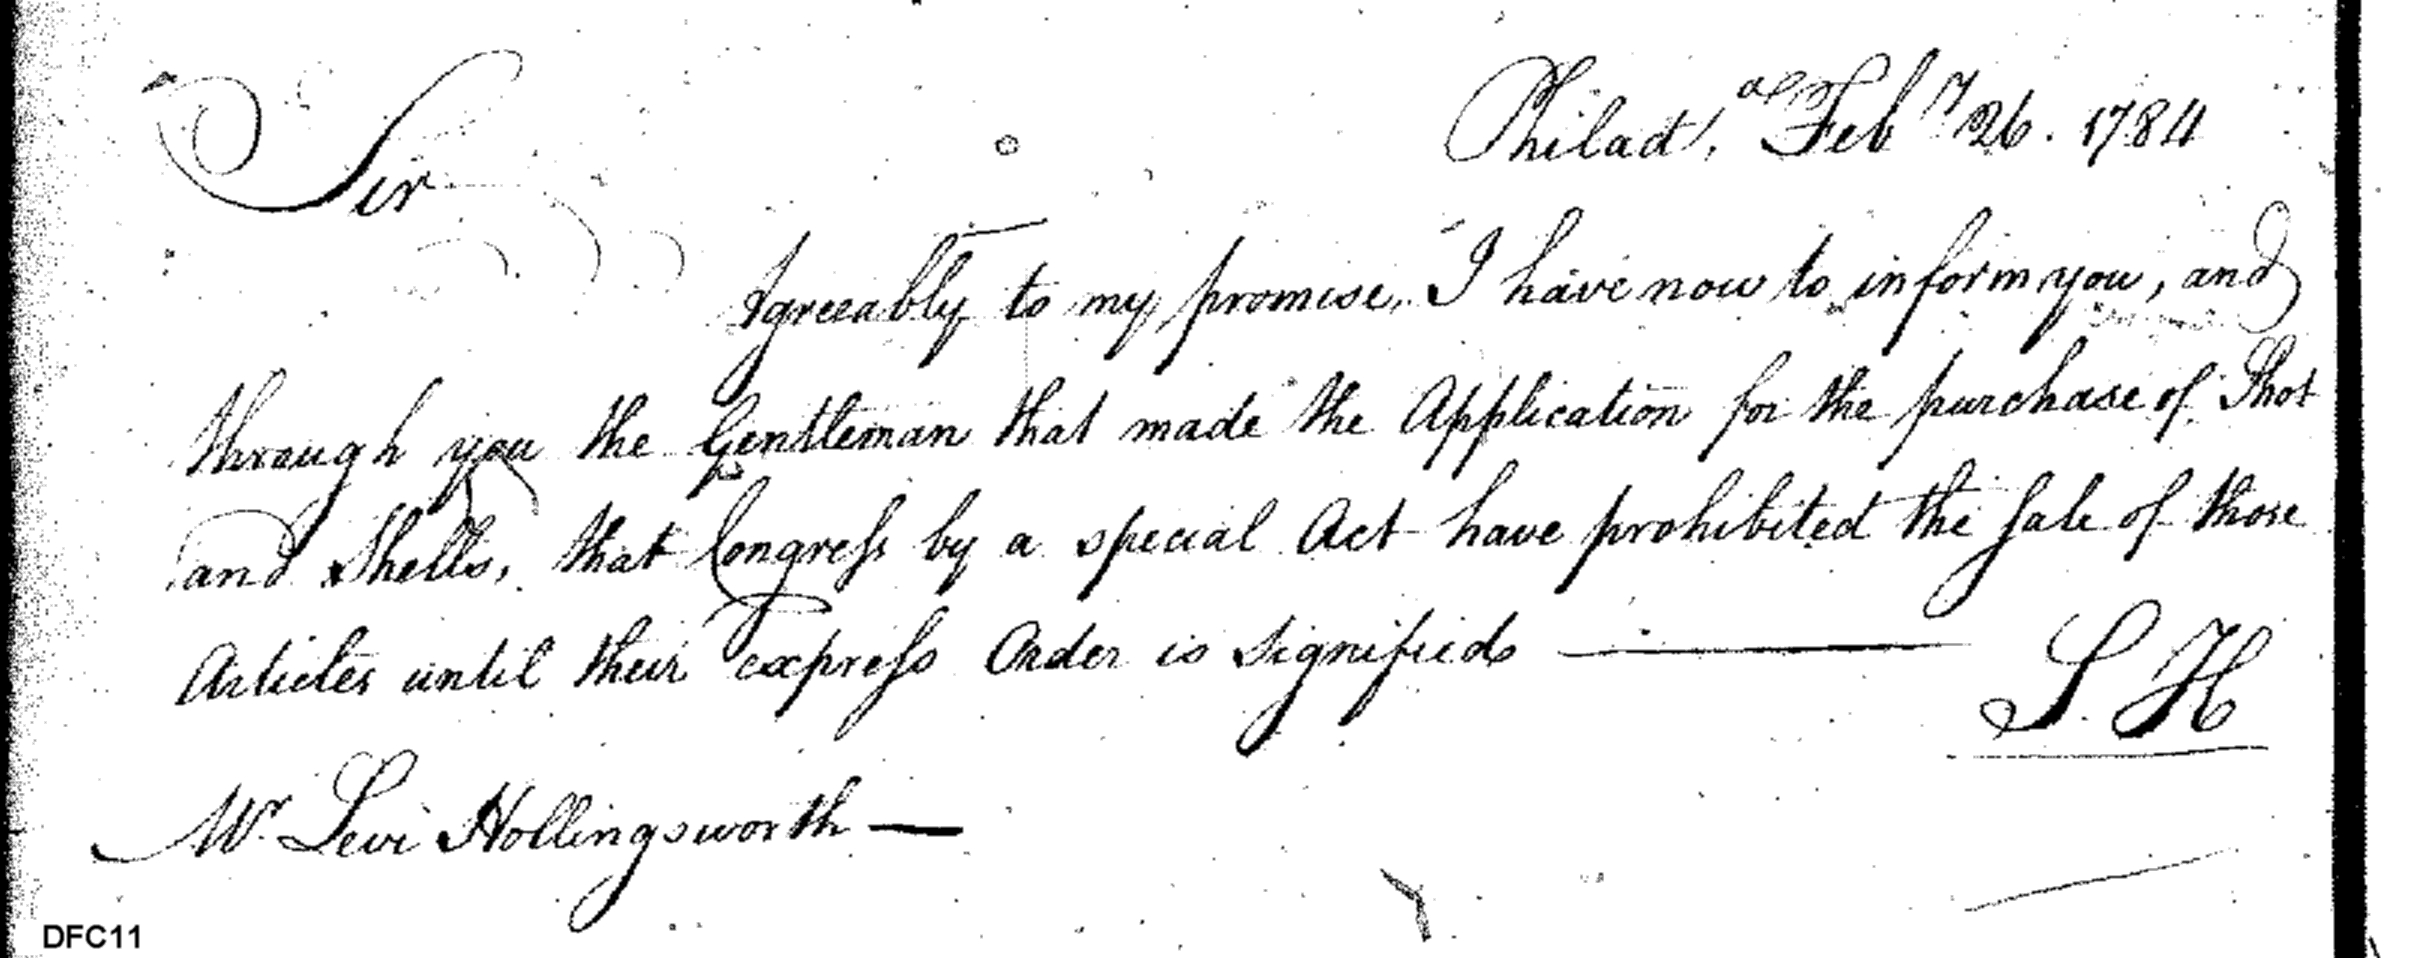 Philad.ª Feb.ʸ 26. 1784
Sir
Agreeably to my promise, I have now to inform you, and
through you the Gentleman that made the Application for the purchase of Shot
and Shells, that Congress by a special Act have prohibited the Sale of those
Articles until their express Order is signified
S. H
Mr. Levi Hollingsworth
DFC11